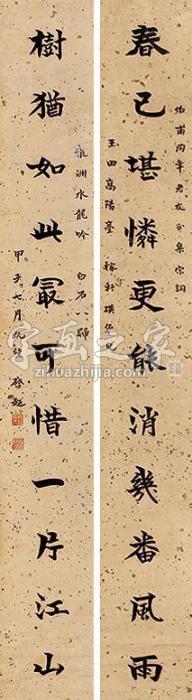 同年老友
集宋詞
春已堪憐更能消幾番風雨
玉田高陽臺 稼軒摸魚兒
龍洲水龍吟 白石八歸
樹猶如此冣可惜一片江山
甲子七月 啟超
字画之家
www.zihuazhijia.com